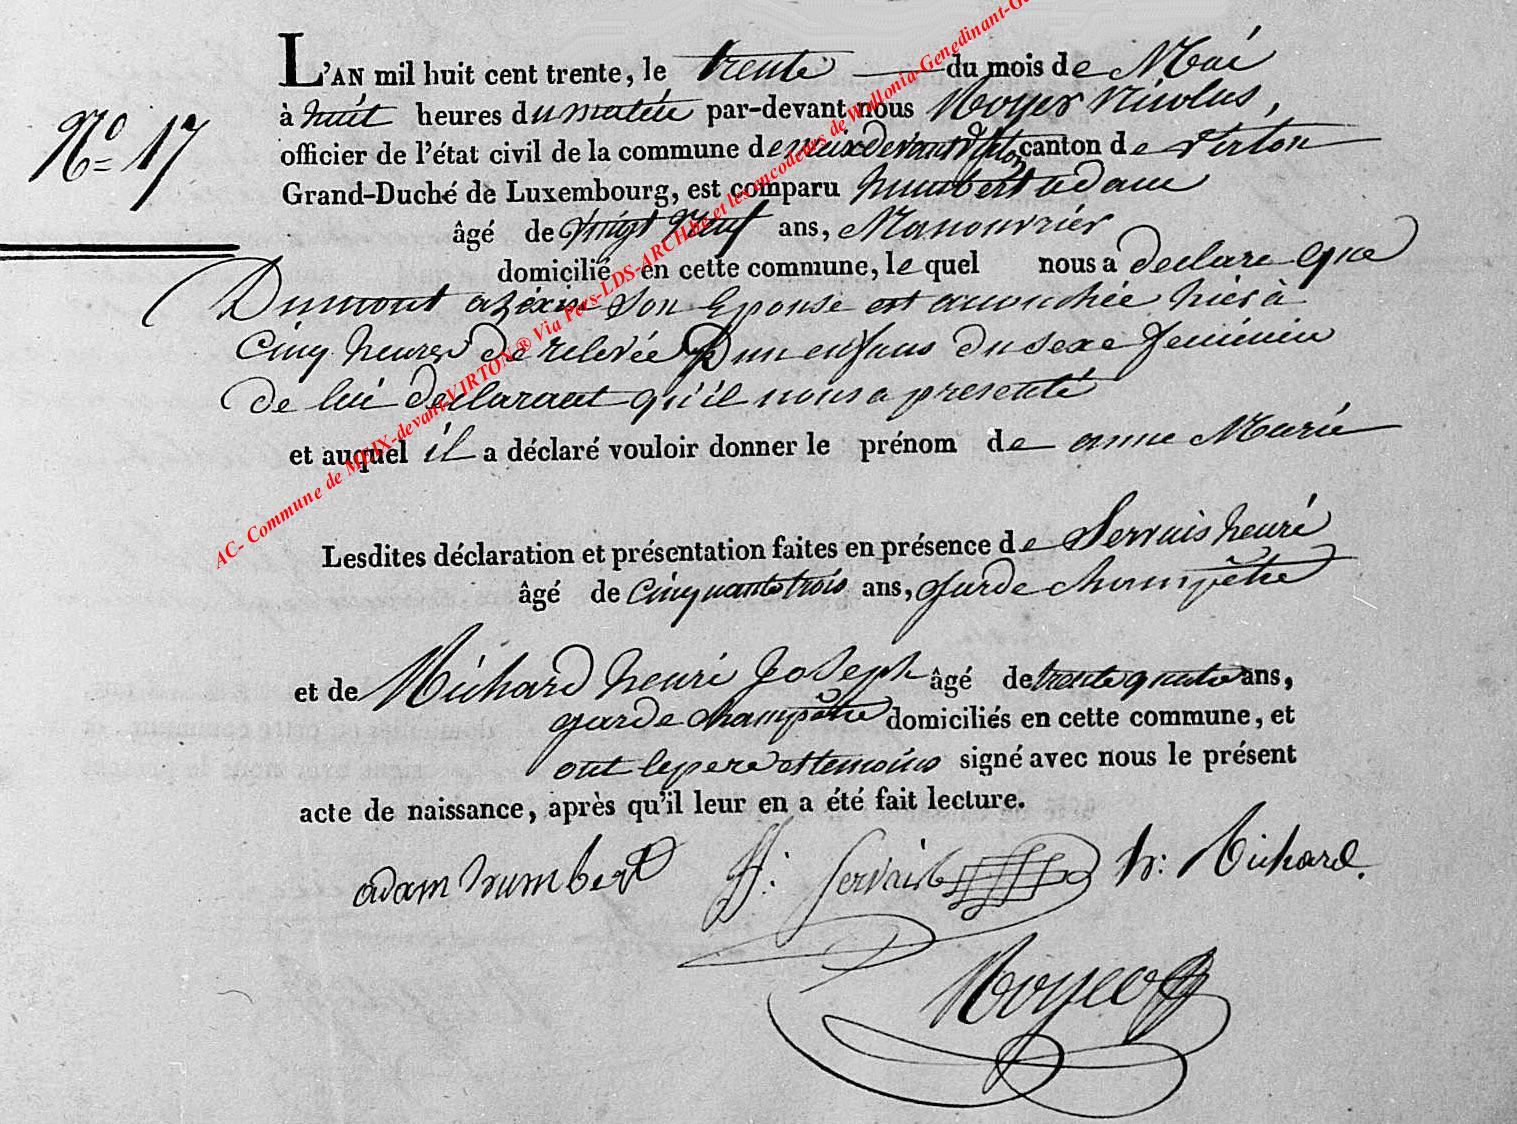 L'AN mil huit cent trente, le trente du mois de Mai
à huit heures du matin par-devant nous Noyer Nicolas,
officier de l'état civil de la commune de meix devant virton canton de virton
Nº 17
Grand-Duché de Luxembourg, est comparu humbert adam
âgé de vingt neuf ans, Manouvrier
domicilié en cette commune, le quel nous a declare que
Dumont son Epouse est acouchée hier à
Cinq heures de relevée D'un enfans du sexe feminin
de lui declarant qu'il nous a presenté
et auquel il a déclaré vouloir donner le prénom de anne Marie
Lesdites déclaration et présentation faites en présence de Servais henri
âgé de Cinquante trois ans, garde champêtre
et de Richard henri Joseph âgé de trente quatre ans,
garde champêtre domiciliés en cette commune, et
ont le pere et temoins signé avec nous le présent
acte de naissance, après qu'il leur en a été fait lecture.
adam humbert H: Servais h: Richard.
AC- Commune de MEIX-devant-VIRTON ® Via Pers-LDS-ARCH.be et les encodeurs de Wallonia-Genedinant-G